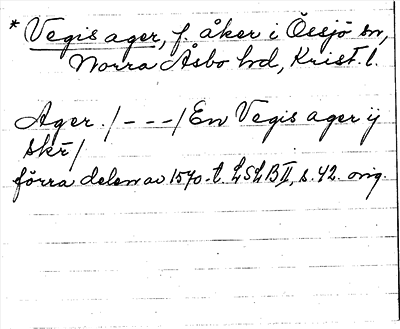 * Vegis ager, f. åker i Össjö sn,
Norra Åsbo hd, Krist. l.
Ager. /---/ En Vegis ager ij
skr̄/
förra delen av 1570-t. LSLB II, s. 42. orig.